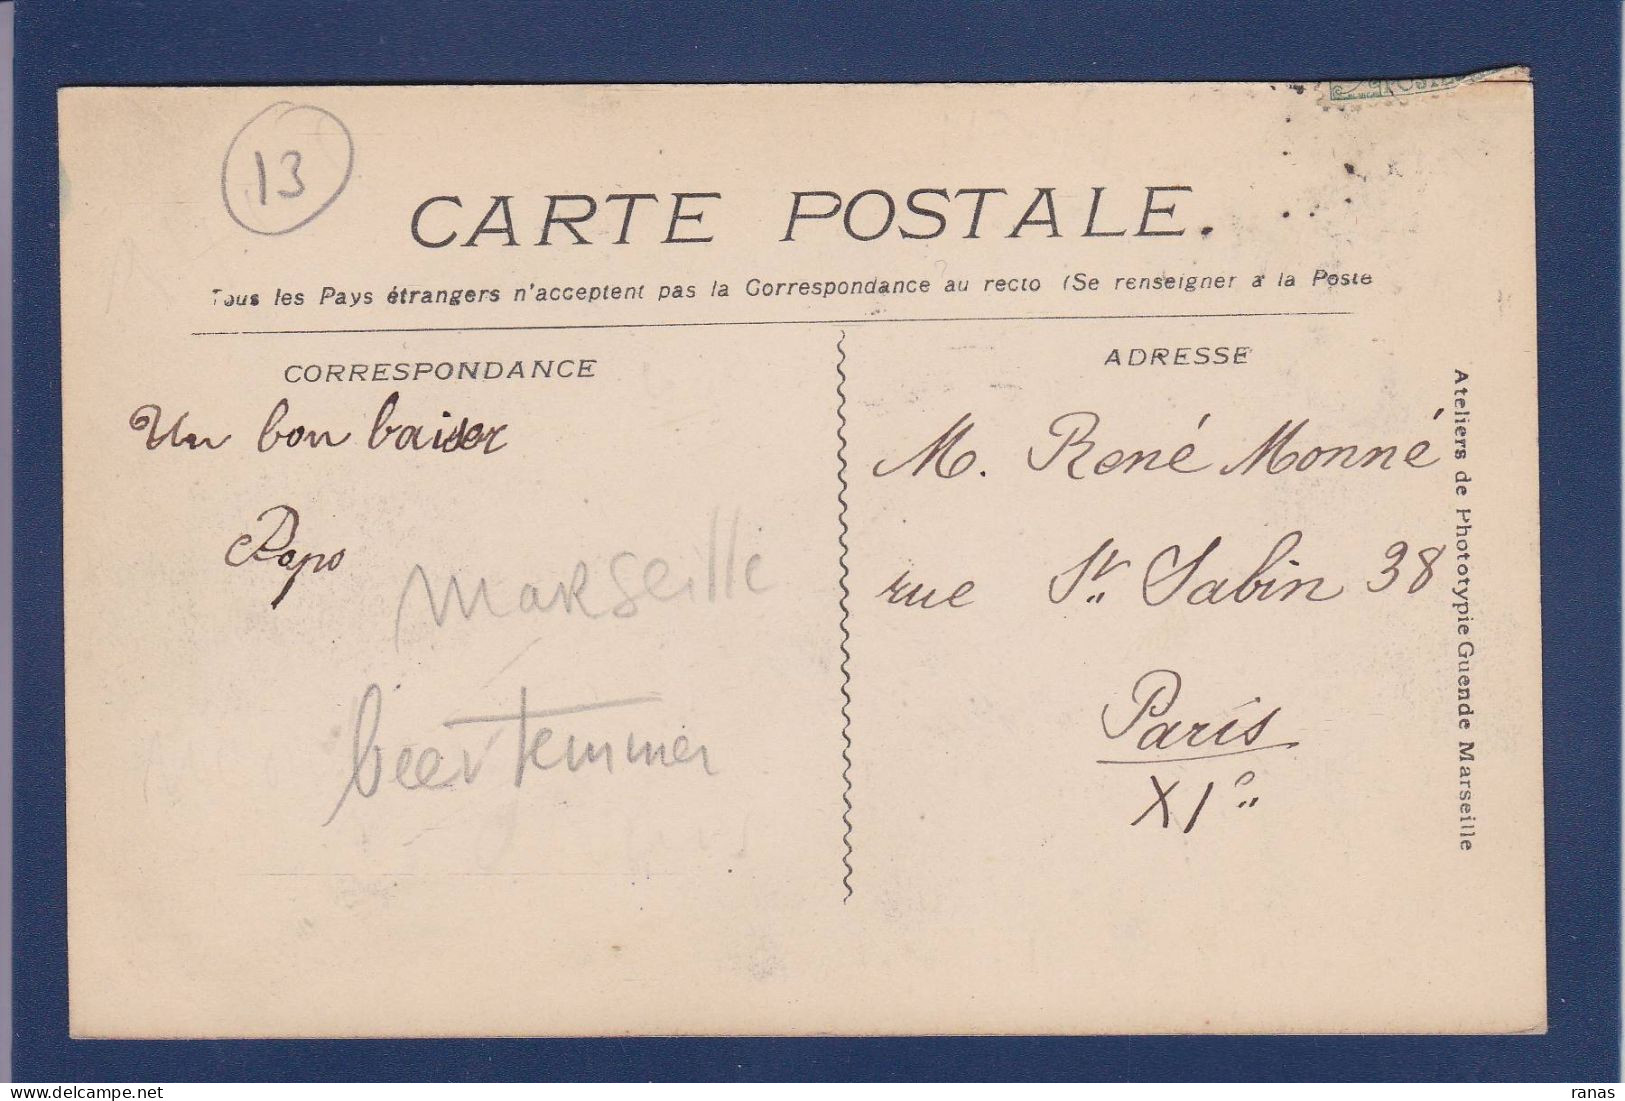 13
CARTE POSTALE.
Tous les Pays étrangers n'acceptent pas la Correspondance au recto (Se renseigner à la Poste
CORRESPONDANCE
Un bon baiser
Papo
Marseille
ADRESSE
M. René Monné
rue St. Sabin 38
Paris
XIe
Ateliers de Phototypie Guende Marseille
delcampe.net
ranas